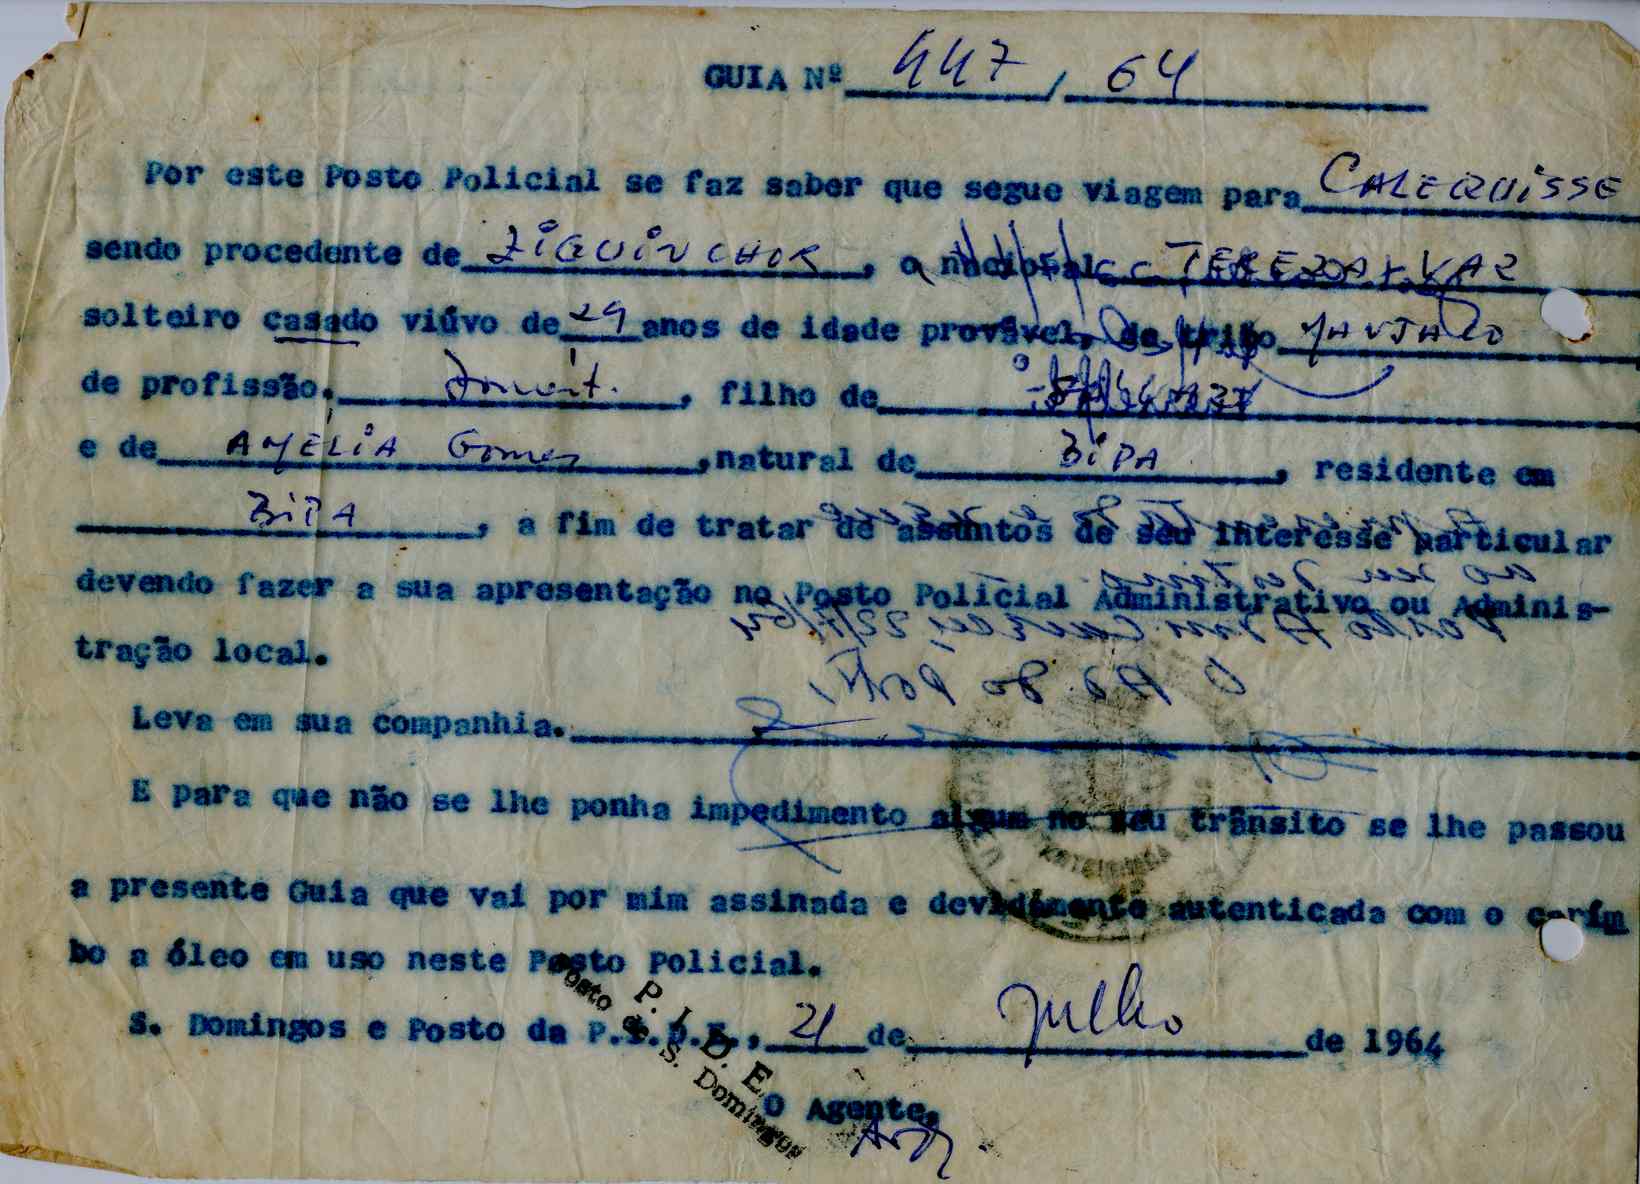 GUIA Nº 447 / 64
Por este Posto Policial se faz saber que segue viagem para CALEQUISSE
sendo procedente de ZIGUINCHOR, o nacional TEREZA VAZ
solteiro casado viúvo de 29 anos de idade provável, de tribo MANJACO
de profissão. Domést., filho de
e de AMÉLIA Gomes, natural de BIPA, residente em
BIPA, a fim de tratar de assuntos de seu interesse particular
devendo fazer a sua apresentação no Posto Policial Administrativo ou Adminis-
tração local.
Leva em sua companhia.
E para que não se lhe ponha impedimento algum no seu trânsito se lhe passou
a presente Guia que vai por mim assinada e devidamente autenticada com o carim
bo a óleo em uso neste Posto Policial.
S. Domingos e Posto da P.I.D.E., 21 de Julho de 1964
P. I. D. E.
Posto de S. Domingos
O Agente,